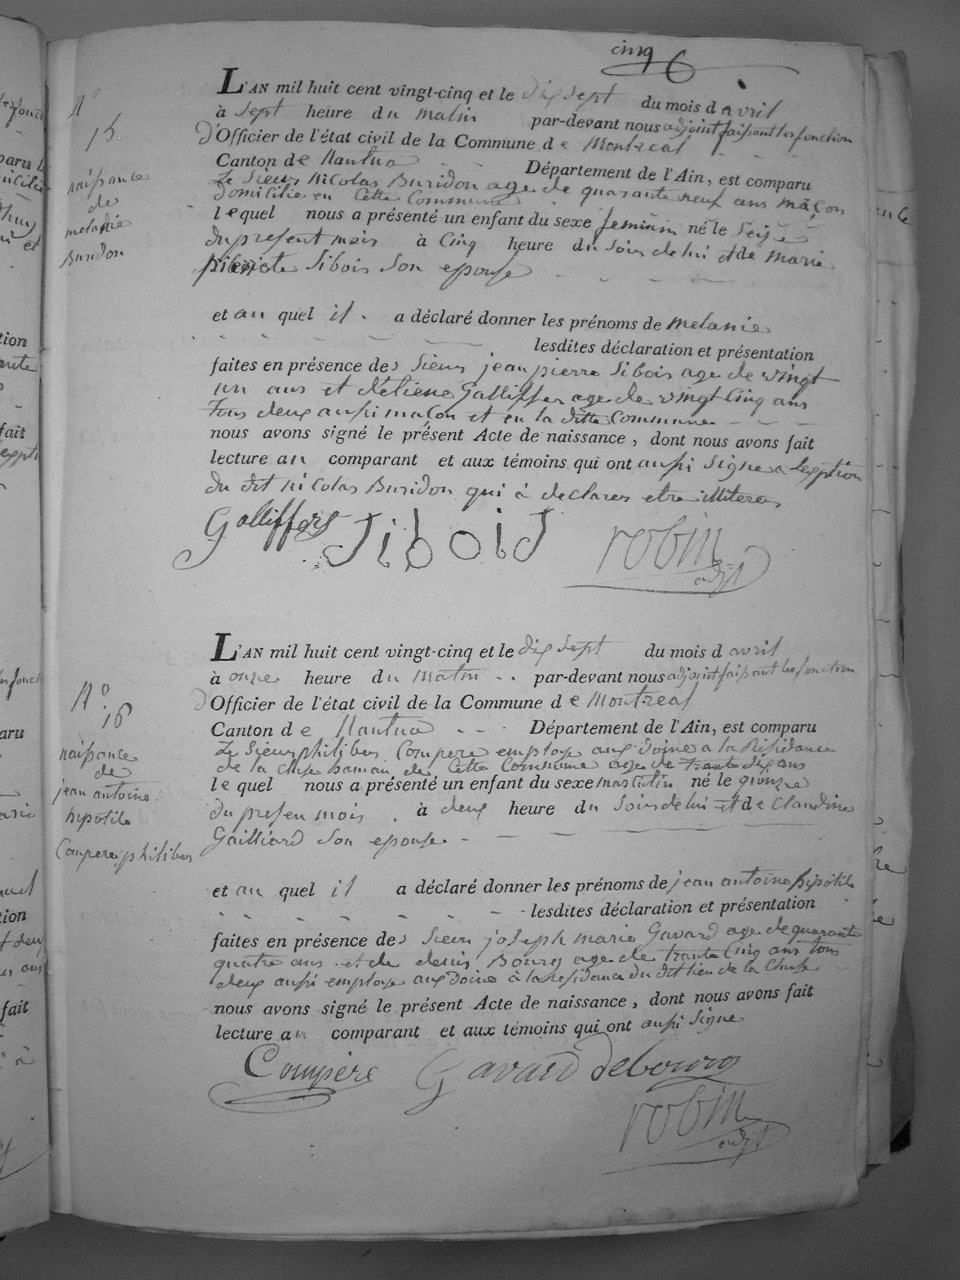 cinq 6
L'AN mil huit cent vingt-cinq et le dix sept du mois d avril
à sept heure du matin par-devant nous adjoint faisant les fonction
d'Officier de l'état civil de la Commune de Montreal
Canton de Nantua Département de l'Ain, est comparu
Le sieur Nicolas Buridon age de quarante neuf ans maçon
domicilié en Cette Commune
lequel nous a présenté un enfant du sexe feminin né le Seize
du present mois à Cinq heure du soir de lui et de marie
Sibois Son epouse
et au quel il a déclaré donner les prénoms de melanie
lesdites déclaration et présentation
faites en présence des Sieurs jean pierre Sibois age de vingt
un ans et d'Etiene Galliffer age de vingt Cinq ans
tous deux aussi maçon et en la ditte Commune
nous avons signé le présent Acte de naissance, dont nous avons fait
lecture au comparant et aux témoins qui ont aussi signe a
du dit Nicolas Buridon qui à declarer etre illiterer
N°
15
naissance
de
melanie
Buridon
Galliffers Sibois robin
adjt
L'AN mil huit cent vingt-cinq et le dix sept du mois d avril
à onze heure du Matin par-devant nous adjoint faisant les fonction
d Officier de l'état civil de la Commune de Montreal
Canton de Nantua Département de l'Ain, est comparu
Le sieur philiber Compere employe aux Doine a la Residance
de la de Cette Commune age de trante dix ans
lequel nous a présenté un enfant du sexe masculin né le quinze
du presen mois à deux heure du Soir de lui et de Claudine
Gailliard Son epouse
et au quel il a déclaré donner les prénoms de jean antoine hipolite
lesdites déclaration et présentation
faites en présence des Sieur joseph marie Gavard age de quarante
quatre ans et de denis Bourg age de trante Cinq ans tous
deux aussi employe aux Doine à la Residance du dit lieu de la
nous avons signé le présent Acte de naissance, dont nous avons fait
lecture au comparant et aux témoins qui ont aussi Signe
N°
16
naissance
de
jean antoine
hipolite
Compere philiber
Compère Gavard Debourg
robin
adjt